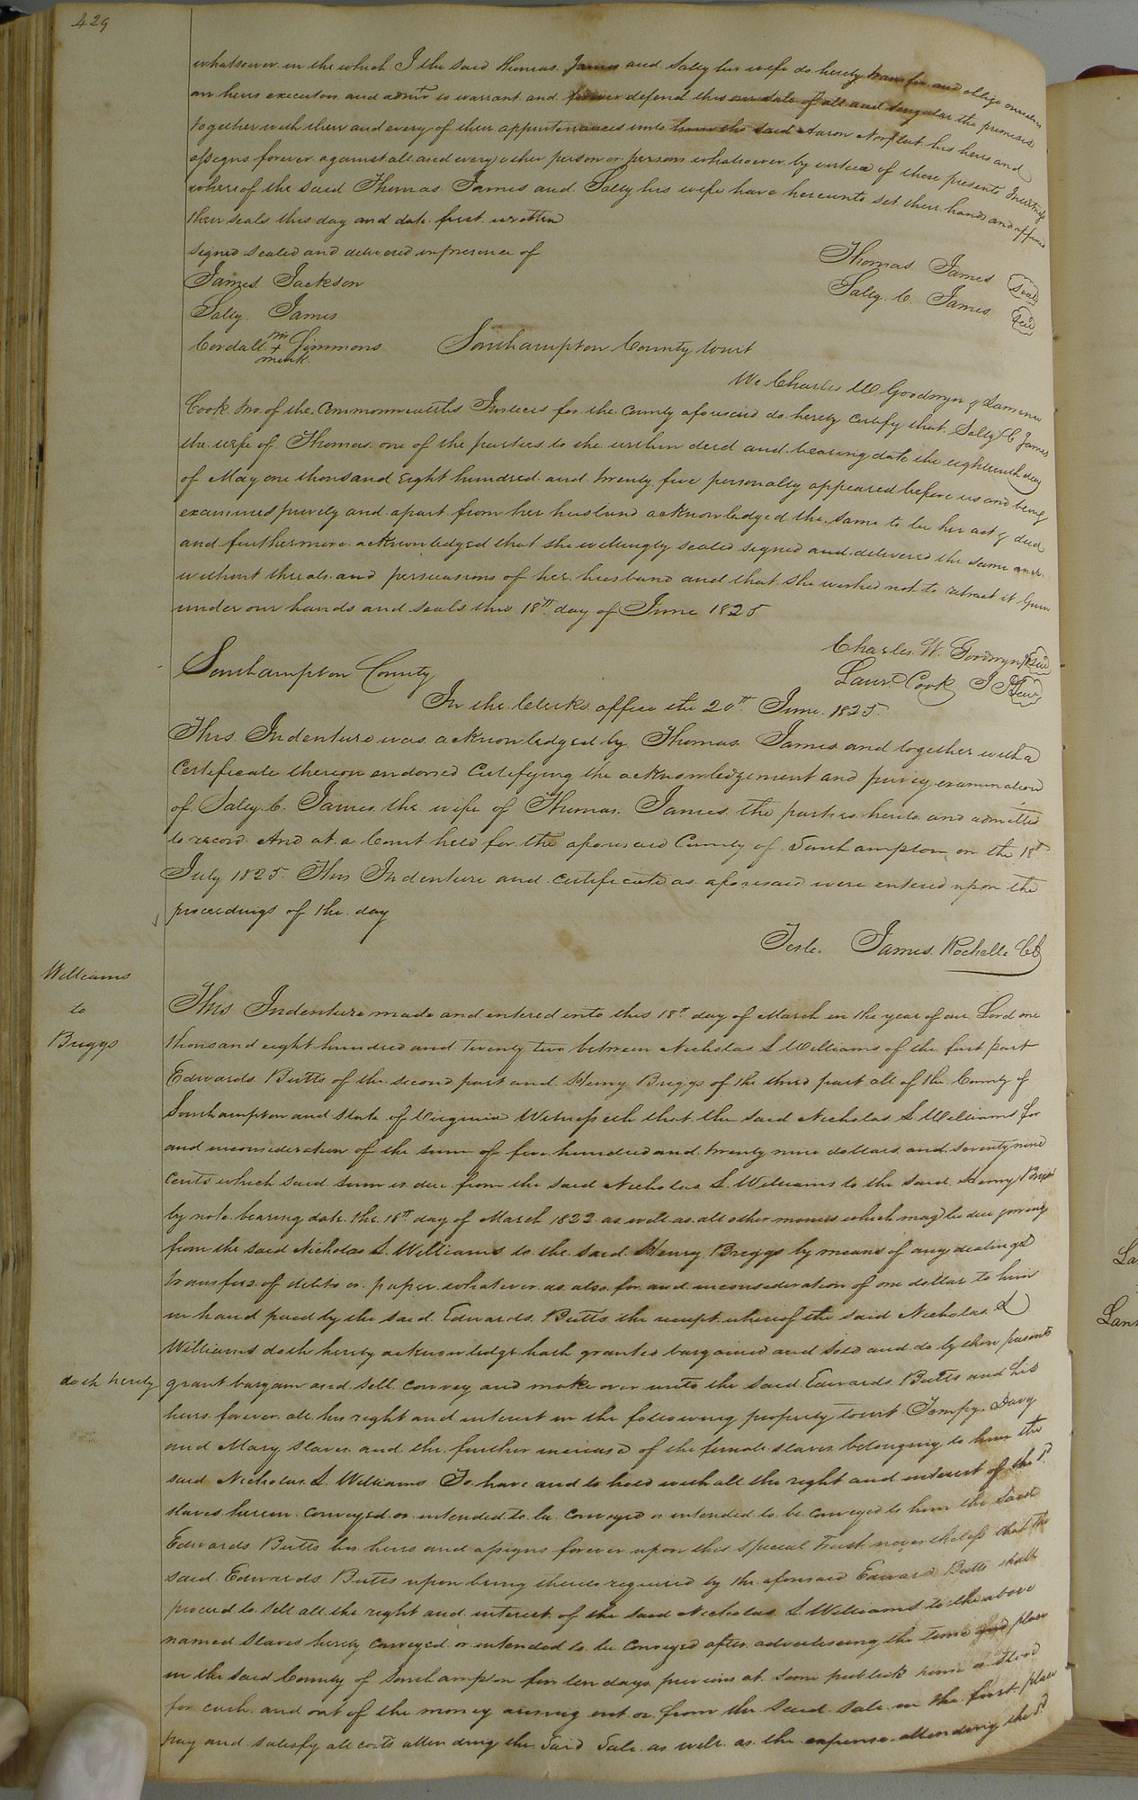 429
whatsoever in the which I the said Thomas James and Sally his wife do hereby and oblige ourselves
our heirs executors and admrs to warrant and forever defend this our sale of all and singular the premises
together with them and every of their appurtenances unto him the said Aaron Norfleet his heirs and
assigns forever against all and every other person or persons whatsoever by virtue of these presents In witness
whereof the said Thomas James and Sally his wife have hereunto set their hands and affixed
their seals this day and date first written
signed sealed and delivered in presence of
Thomas James seal
James Jackson
Sally C. James seal
Sally James
Cordall his + mark Simmons
Southampton County Court
We Charles W Goodwyn &
Cook two of the Commonwealths Justices for the county aforesaid do hereby certify that Sally C James
the wife of Thomas one of the parties to the within deed and bearing date the eighteenth day
of May one thousand eight hundred and twenty five personally appeared before us and being
examined privily and apart from her husband acknowledged the same to be her act & deed
and furthermore acknowledged that she willingly sealed signed and delivered the same
without threats and persuasions of her husband and that she wished not to retract it Given
under our hands and seals this 18th day of June 1825
Charles W. Goodwyn seal
Laur. Cook J P seal
Southampton County
In the Clerks office the 20th June 1825
This Indenture was acknowledged by Thomas James and together with a
Certificate thereon endorsed Certifying the acknowledgement and privy examination
of Sally C. James the wife of Thomas James the parties hereto and admitted
to record And at a Court held for the aforesaid County of Southampton on the 18th
July 1825 This Indenture and certificate as aforesaid were entered upon the
proceedings of the day
Teste. James Rochelle CC
Williams
to
Briggs
This Indenture made and entered into this 18th day of March in the year of our Lord one
thousand eight hundred and twenty two between Nicholas S Williams of the first part
Edwards Butts of the second part and Henry Briggs of the third part all of the County of
Southampton and State of Virginia Witnesseth that the said Nicholas S Williams for
and inconsideration of the sum of five hundred and twenty nine dollars and seventy nine
Cents which said sum is due from the said Nicholas S. Williams to the said Henry Briggs
by note bearing date the 18th day of March 1822 as well as all other monies which may be due
from the said Nicholas S. Williams to the said Henry Briggs by means of any dealings
transfers of debts or paper whatever as also for and inconsideration of one dollar to him
in hand paid by the said Edwards Butts the receipt whereof the said Nicholas S
Williams doth hereby acknowledge hath granted bargained and sold and do by these presents
doth hereby
grant bargain and sell convey and make over unto the said Edwards Butts and his
heirs forever all his right and interest in the following property towit Tempy Davy
and Mary slaves and the further increase of the female slaves belonging to him the
said Nicholas S. Williams To have and to hold with all the right and interest of the sd
slaves herein conveyed or intended to be conveyed or intended to be conveyed to him the said
Edwards Butts his heirs and assigns forever upon this special trust nevertheless that the
said Edwards Butts upon being thereto required by the aforesaid Edward Butts shall
proceed to sell all the right and interest of the said Nicholas S Williams to the above
named slaves hereby conveyed or intended to be conveyed after advertiseing the time and place
in the said County of Southampton for ten days previous at some publick
for cash and out of the money arising out or from the said sale in the first place
pay and satisfy all costs attending the said sale as well as the expense attending the sd